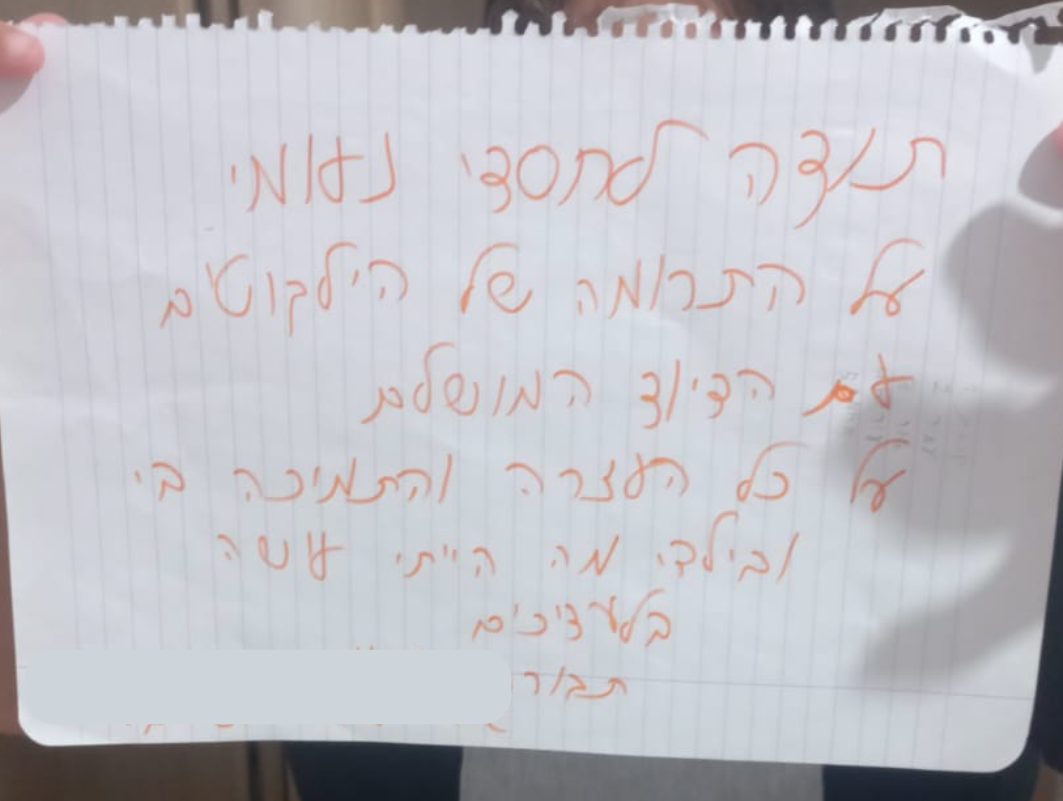 תודה לחסדי נעומי
על התרומה של הילקוטים
עם הציוד המושלם
על כל העזרה והתמיכה בי
ובילדי מה הייתי עושה
בלעדיכים